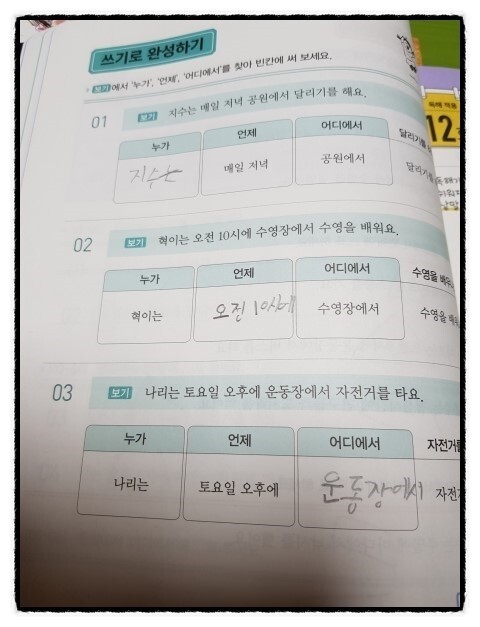 쓰기로 완성하기
보기 에서 '누가', '언제', '어디에서'를 찾아 빈칸에 써 보세요.
01 보기 지수는 매일 저녁 공원에서 달리기를 해요.
누가 언제 어디에서 달리기를
지수는 매일 저녁 공원에서 달리기를
02 보기 혁이는 오전 10시에 수영장에서 수영을 배워요.
누가 언제 어디에서 수영을 배워
혁이는 오전 10시에 수영장에서 수영을 배워
03 보기 나리는 토요일 오후에 운동장에서 자전거를 타요.
누가 언제 어디에서 자전거를
나리는 토요일 오후에 운동장에서 자전
12